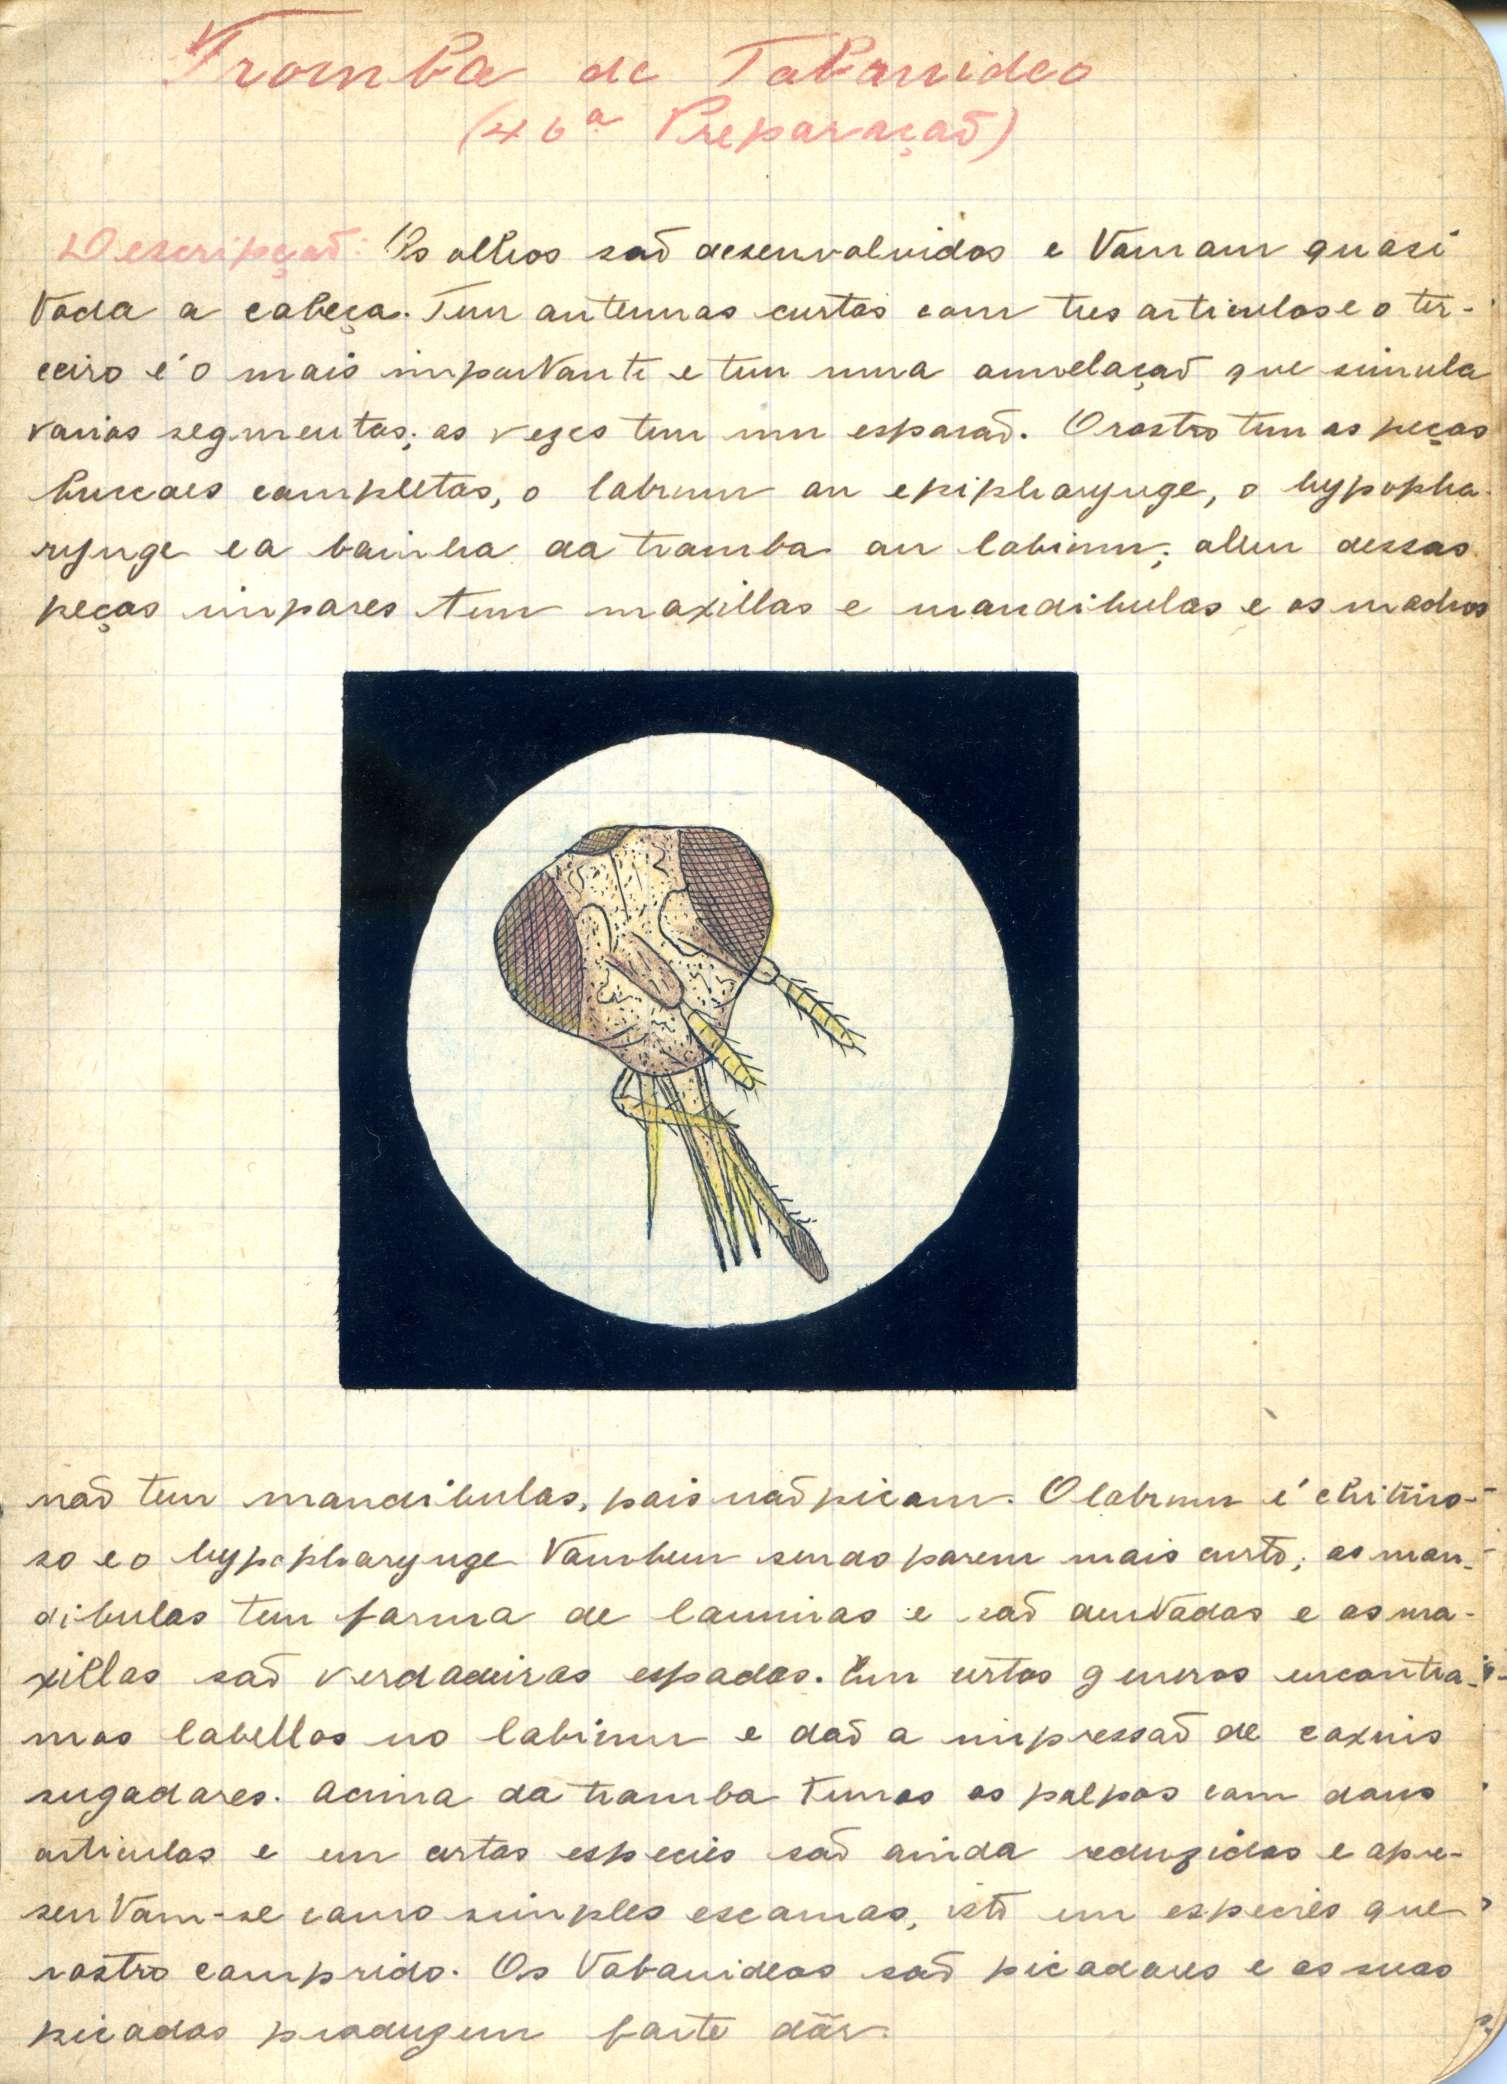 Tromba de Tabanideo
(46ª Preparação)
Descripção: Os olhos são desenvolvidos e tomam quasi
toda a cabeça. Tem antennas curtas com tres articulos e o ter-
ceiro é o mais importante e tem uma annelação que simula
varios segmentos; as vezes tem um esporão. O rostro tem as peças
buccaes completas, o labrum ou epipharynge, o hypopha-
rynge e a bainha da tromba ou labium; alem dessas
peças impares tem maxillas e mandibulas e os machos
não tem mandibulas, pois não picam. O labrum é chitino-
so e o hypopharynge tambem sendo porem mais curto; as man-
dibulas tem forma de laminas e são dentadas e as ma-
xillas são verdadeiras espadas. Em certos generos encontra-
mos labellos no labium e dão a impressão de coxins
sugadores. Acima da tromba temos os palpos com dous
articulos e em certas especies são ainda reduzidos e apre-
sentam-se como simples escamas, isto em especies que
rostro comprido. Os Tabanideos são picadores e as suas
picadas produzem forte dôr.